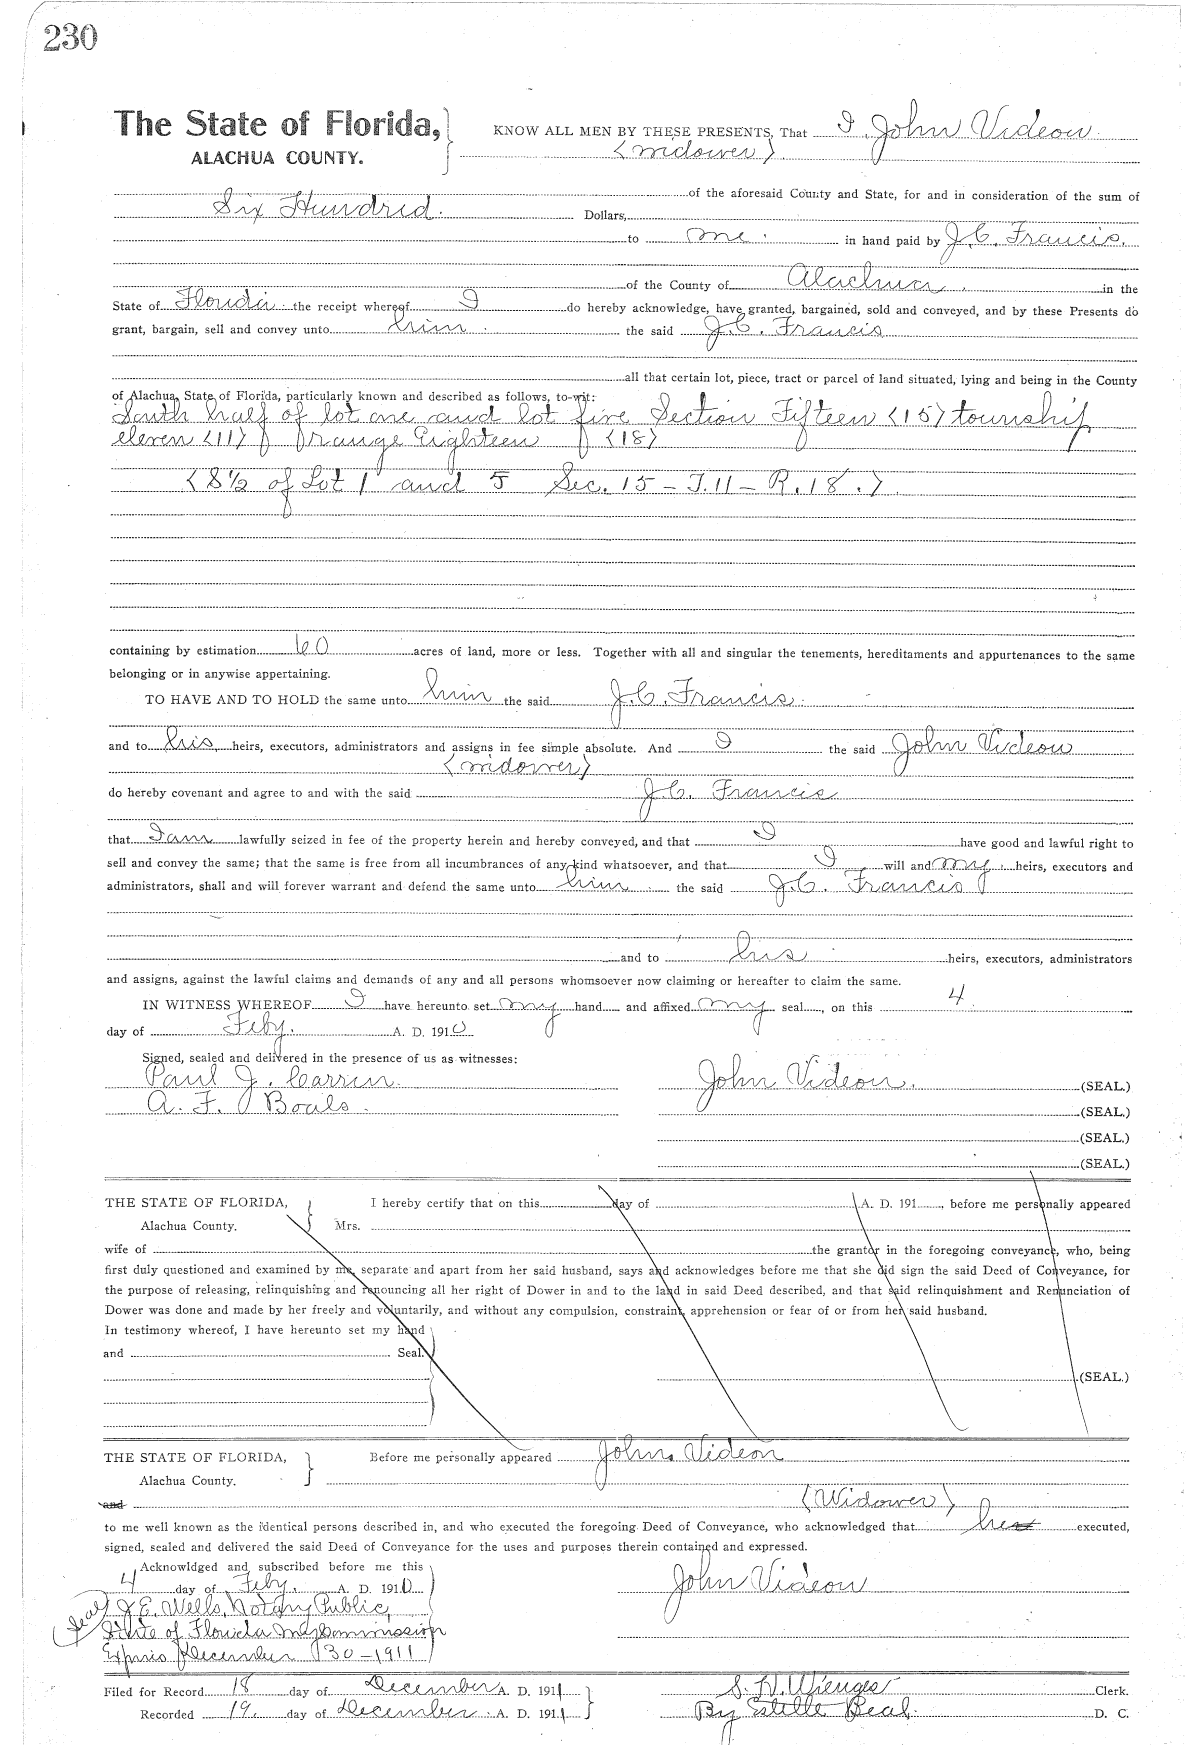 230
The State of Florida, KNOW ALL MEN BY THESE PRESENTS, That I, John Videon
ALACHUA COUNTY. (widower)
of the aforesaid County and State, for and in consideration of the sum of
Six Hundred. Dollars,
to me. in hand paid by J.C. Francis.
of the County of Alachua in the
State of Florida the receipt whereof I do hereby acknowledge, have granted, bargained, sold and conveyed, and by these Presents do
grant, bargain, sell and convey unto him the said J.C. Francis
all that certain lot, piece, tract or parcel of land situated, lying and being in the County
of Alachua, State of Florida, particularly known and described as follows, to-wit:
South half of lot one and lot five Section Fifteen (15) township
eleven (11) range Eighteen (18)
(S 1/2 of Lot 1 and 5 Sec. 15 - T. 11 - R. 18.)
containing by estimation 60 acres of land, more or less. Together with all and singular the tenements, hereditaments and appurtenances to the same
belonging or in anywise appertaining.
TO HAVE AND TO HOLD the same unto him the said J.C. Francis
and to his heirs, executors, administrators and assigns in fee simple absolute. And I the said John Videon
(widower)
do hereby covenant and agree to and with the said J.C. Francis
that I am lawfully seized in fee of the property herein and hereby conveyed, and that I have good and lawful right to
sell and convey the same; that the same is free from all incumbrances of any kind whatsoever, and that I will and my heirs, executors and
administrators, shall and will forever warrant and defend the same unto him the said J.C. Francis
and to his heirs, executors, administrators
and assigns, against the lawful claims and demands of any and all persons whomsoever now claiming or hereafter to claim the same.
IN WITNESS WHEREOF I have hereunto set my hand and affixed my seal, on this 4
day of Feby. A. D. 1910
Signed, sealed and delivered in the presence of us as witnesses:
Paul J. John Videon. (SEAL.)
A. F. Boals. (SEAL.)
(SEAL.)
(SEAL.)
THE STATE OF FLORIDA, I hereby certify that on this day of A. D. 191 , before me personally appeared
Alachua County. Mrs.
wife of the grantor in the foregoing conveyance, who, being
first duly questioned and examined by me, separate and apart from her said husband, says and acknowledges before me that she did sign the said Deed of Conveyance, for
the purpose of releasing, relinquishing and renouncing all her right of Dower in and to the land in said Deed described, and that said relinquishment and Renunciation of
Dower was done and made by her freely and voluntarily, and without any compulsion, constraint, apprehension or fear of or from her said husband.
In testimony whereof, I have hereunto set my hand
and Seal.
(SEAL.)
THE STATE OF FLORIDA, Before me personally appeared John Videon
Alachua County.
and (Widower)
to me well known as the identical persons described in, and who executed the foregoing Deed of Conveyance, who acknowledged that he executed,
signed, sealed and delivered the said Deed of Conveyance for the uses and purposes therein contained and expressed.
Acknowldged and subscribed before me this
4 day of Feby. A. D. 1910 John Videon
(Seal) J.E. Wells, Notary Public,
State of Florida My Commission
Expires December 30 - 1911
Filed for Record 18 day of December A. D. 1911 S. H. Wienges Clerk.
Recorded 19. day of December. A. D. 1911 By Estelle Beal. D. C.